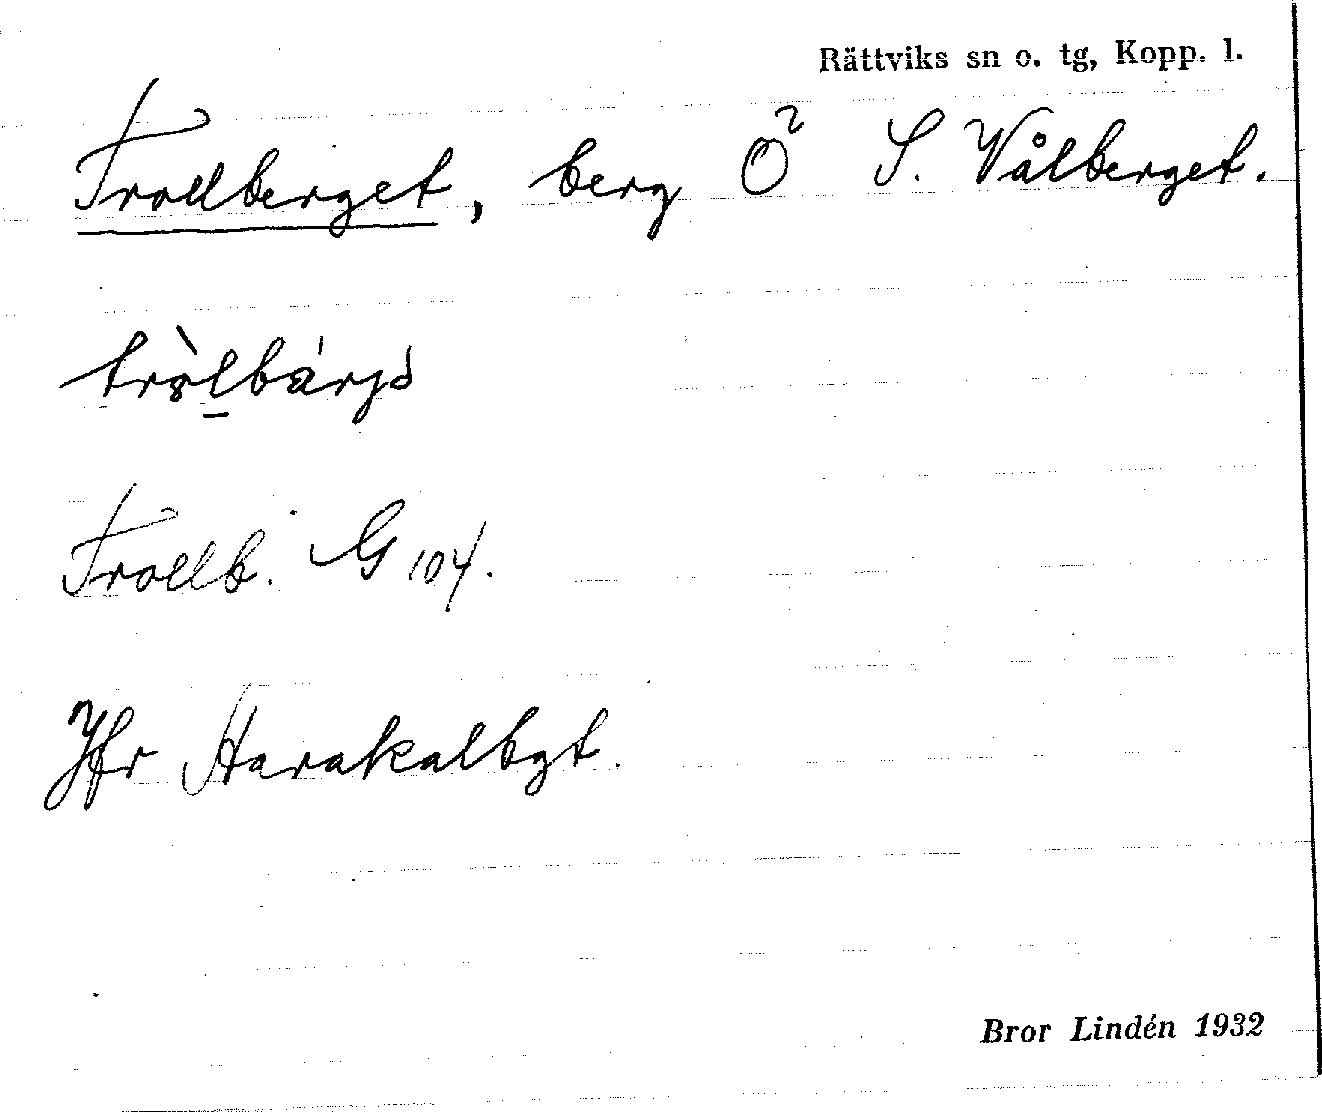 Rättviks sn o. tg, Kopp. l.
Trollberget, berg Ö² S. Vålberget.
Trollb. G 104.
Jfr Harakalbgt.
Bror Lindén 1932